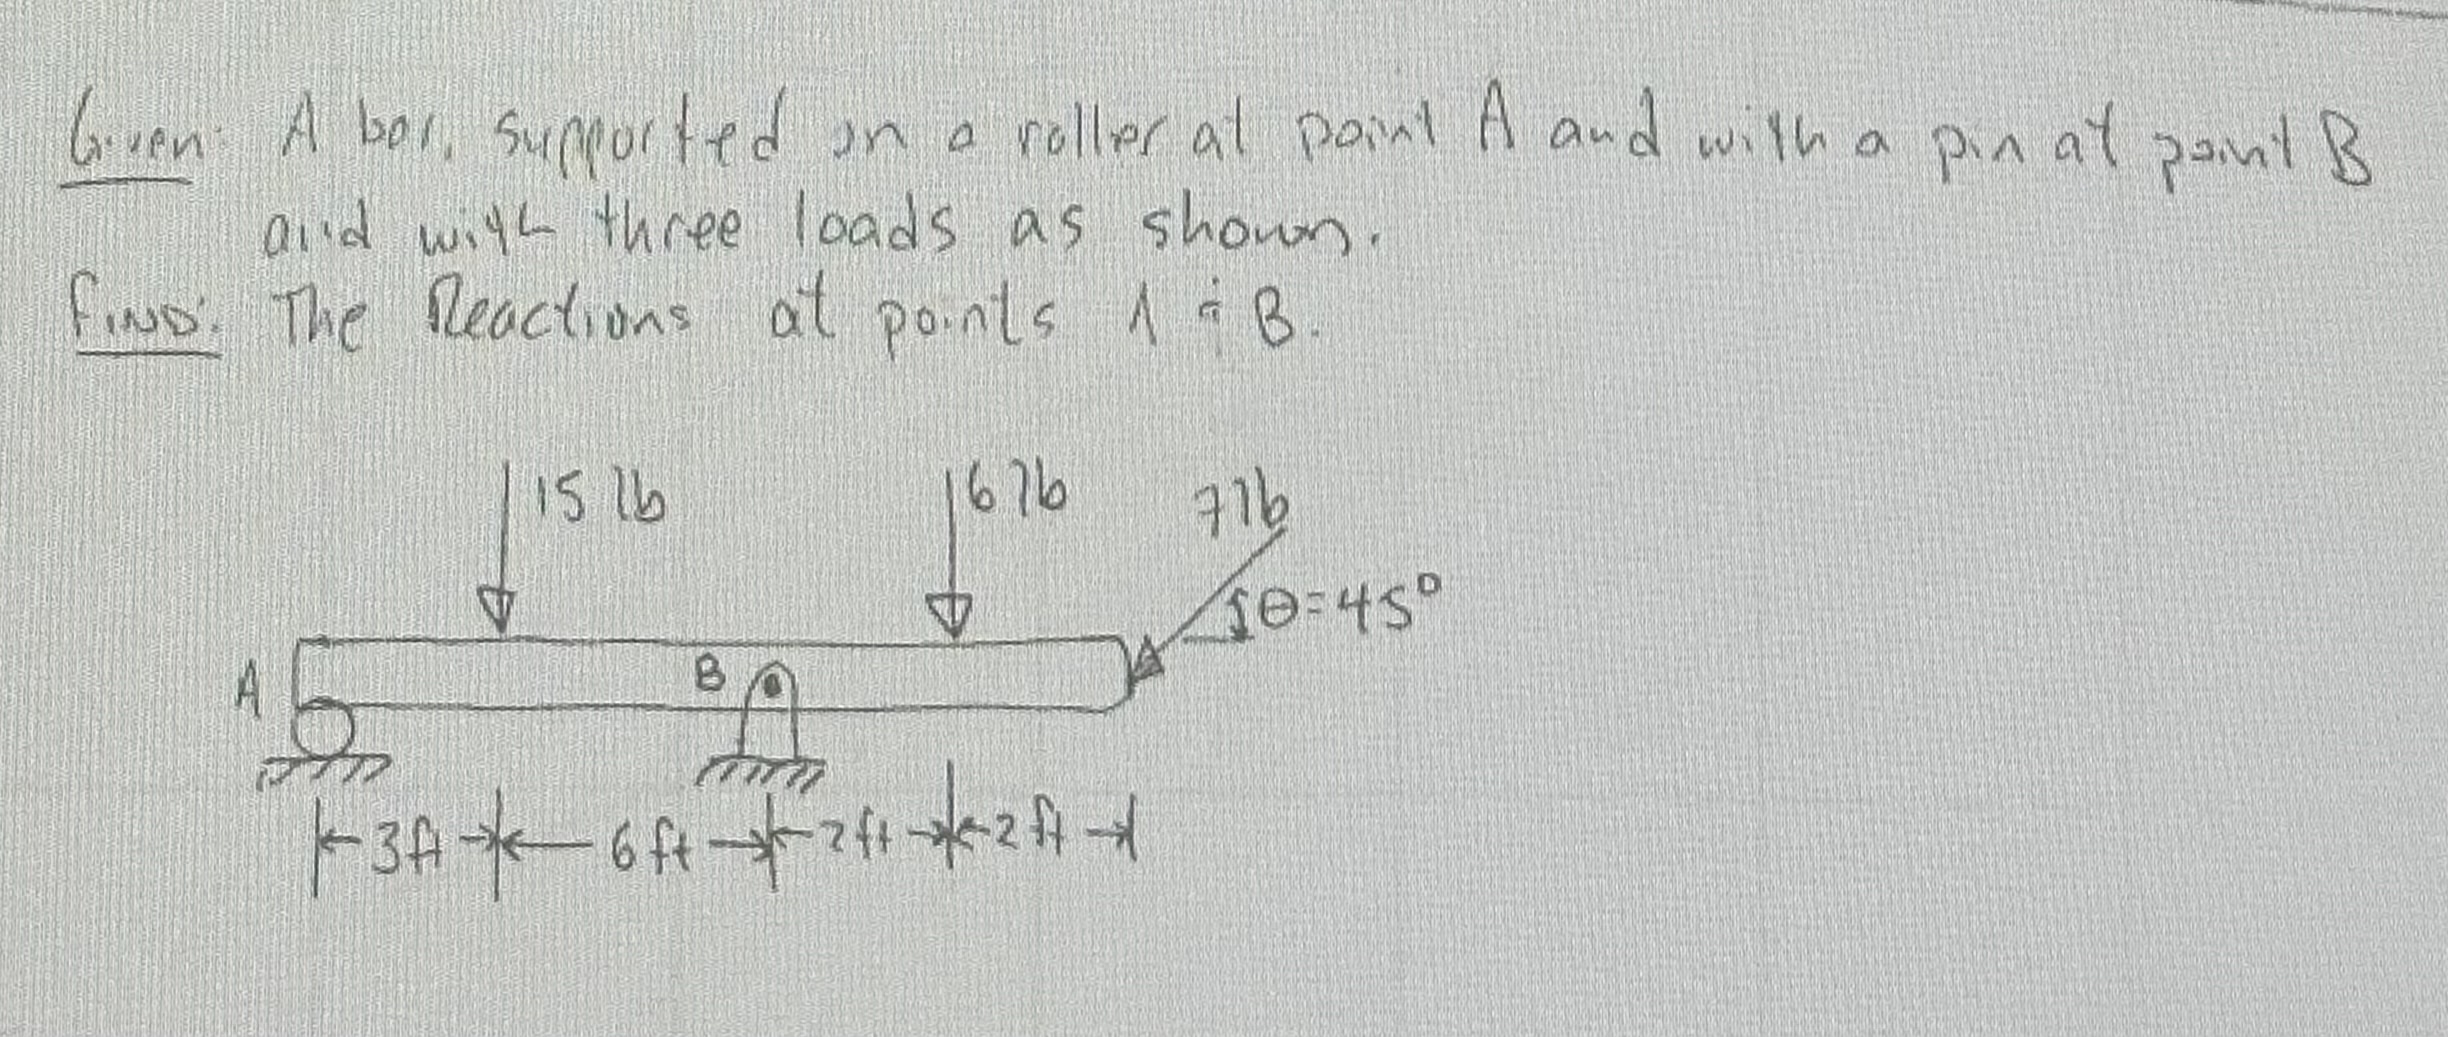 Given: A bar, supported on a roller at point A and with a pin at point B
and with three loads as shown.
FIND: The Reactions at points A & B.
15 lb
6 lb
7 lb
θ=45°
A
B
3 ft
6 ft
2 ft
2 ft